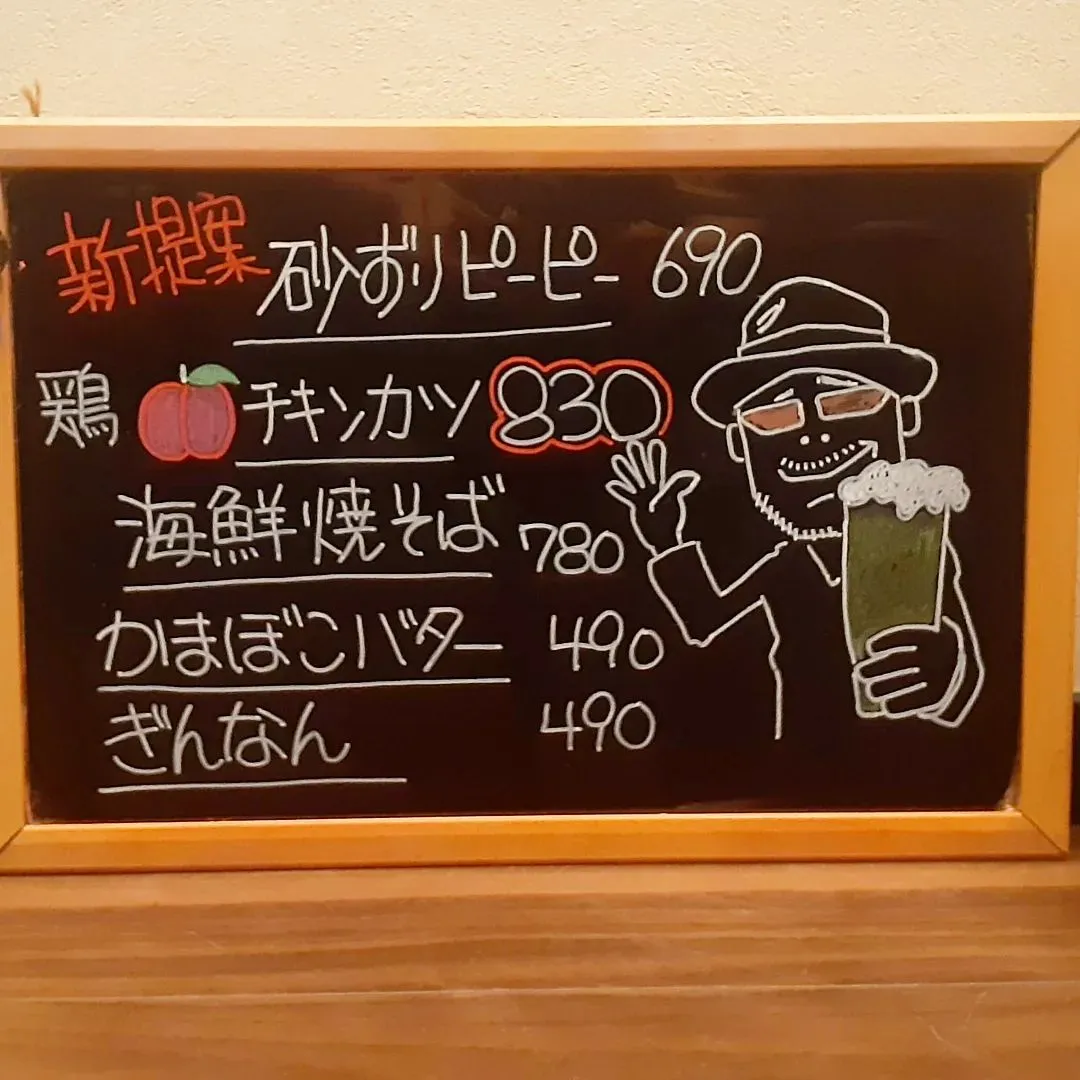 新提案 砂ずりピーピー 690
鶏 チキンカツ 830
海鮮焼そば 780
かまぼこバター 490
ぎんなん 490